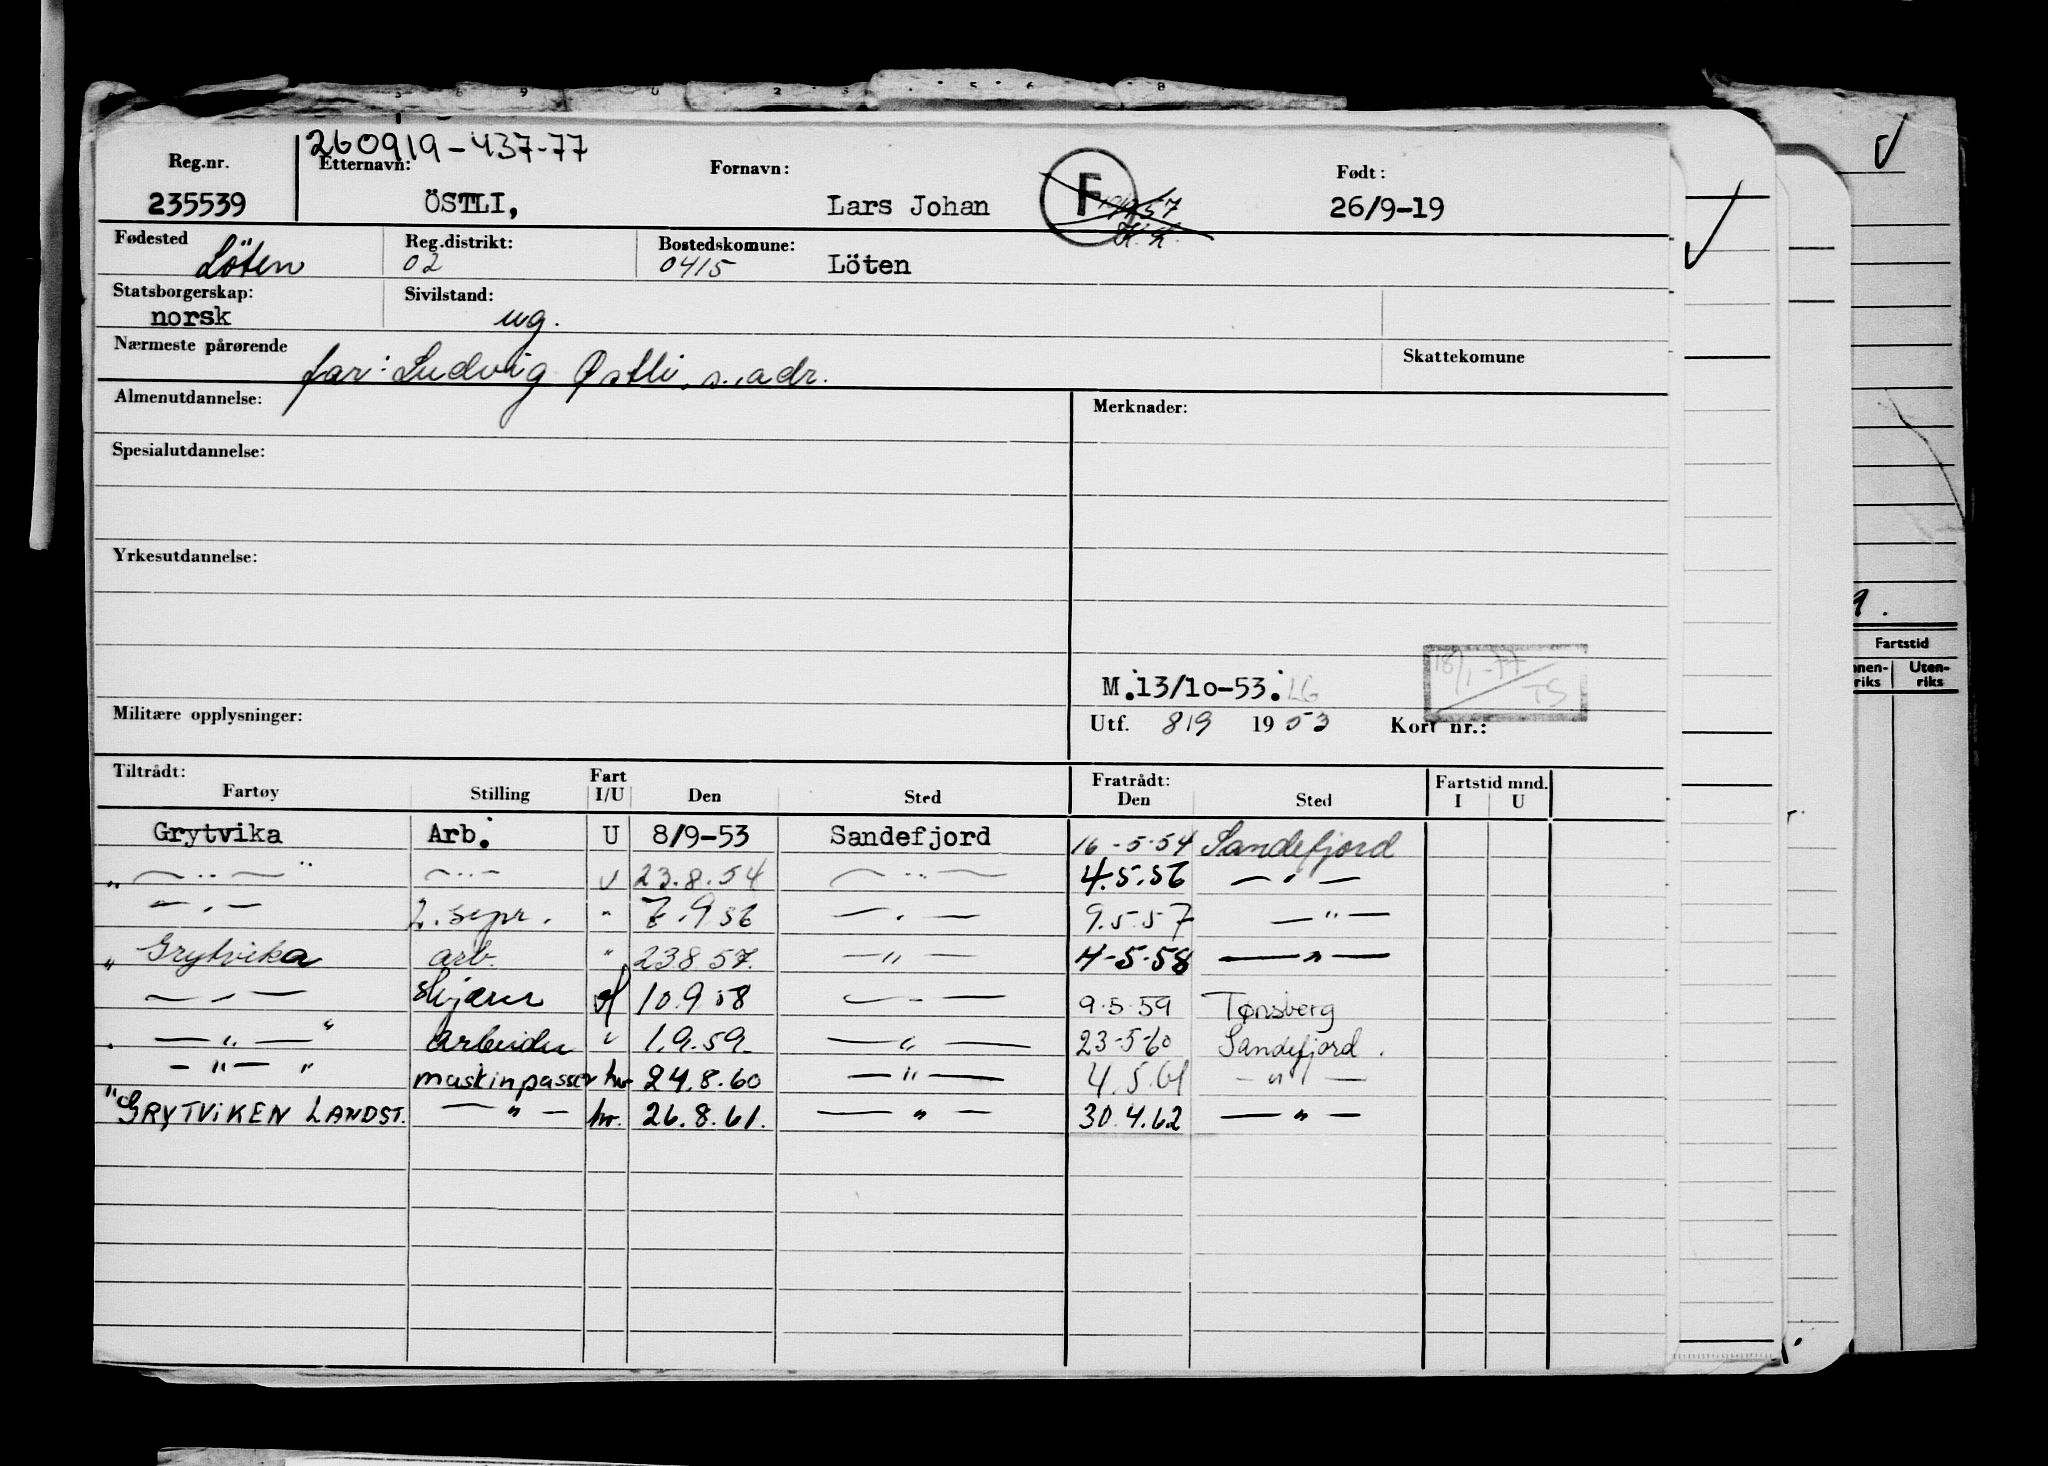 260919-437-77
Reg.nr. Etternavn: Fornavn: Født:
235539 ÖSTLI, Lars Johan F 26/9-19
Fødested Reg.distrikt: Bostedskomune:
Löten 02 0415 Löten
Statsborgerskap: Sivilstand:
norsk ug.
Nærmeste pårørende Skattekomune
far: Ludvig Østli, s. adr.
Almenutdannelse: Merknader:
Spesialutdannelse:
Yrkesutdannelse:
18/1-77 TS
M.13/10-53. LG
Militære opplysninger: Utf. 8/9 1953 Kort nr.:
Tiltrådt: Fart Fratrådt: Fartstid mnd.
Fartøy Stilling I/U Den Sted Den Sted I U
Grytvika Arb. U 8/9-53 Sandefjord 16-5-54 Sandefjord
" — " — " — " — U 23.8.54 — " — 4.5.56 — " —
— " — 2. sepr. " 7.9 56 — " — 9.5.57 — " —
" Grytvika arb. " 23 8 57. — " — 4-5-58 — " —
— " — 10.9.58 — " — 9.5.59 Tønsberg
— " — " arbeider U 1.9.59. — " — 23-5-60 Sandefjord.
— " — " maskinpasser hv 24.8.60 — " — 4.5.61 — " —
" GRYTVIKEN LANDST. — " — hv. 26.8.61. — " — 30.4.62 — " —
9.
Fartstid
Uten-
riks riks